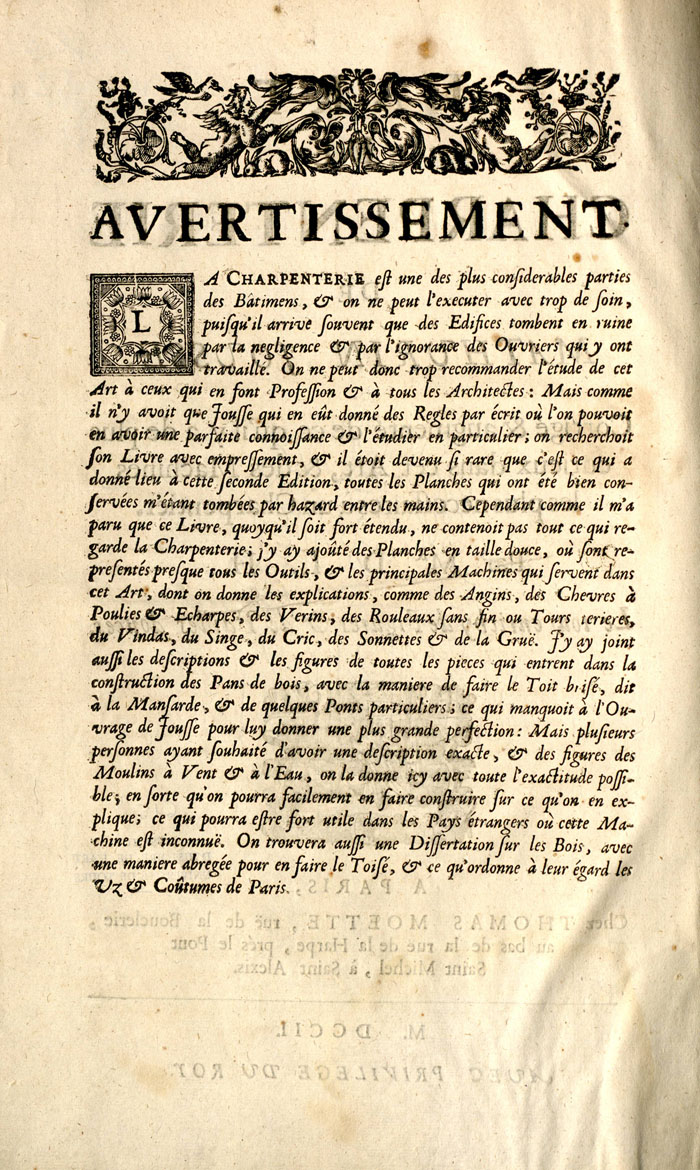 AVERTISSEMENT.
LA CHARPENTERIE est une des plus considerables parties
des Bâtimens, & on ne peut l'executer avec trop de soin,
puisqu'il arrive souvent que des Edifices tombent en ruine
par la negligence & par l'ignorance des Ouvriers qui y ont
travaillé. On ne peut donc trop recommander l'étude de cet
Art à ceux qui en font Profession & à tous les Architectes: Mais comme
il n'y avoit que Jousse qui en eût donné des Regles par écrit où l'on pouvoit
en avoir une parfaite connoissance & l'étudier en particulier; on recherchoit
son Livre avec empressement, & il étoit devenu si rare que c'est ce qui a
donné lieu à cette seconde Edition, toutes les Planches qui ont été bien con-
servées m'étant tombées par hazard entre les mains. Cependant comme il m'a
paru que ce Livre, quoyqu'il soit fort étendu, ne contenoit pas tout ce qui re-
garde la Charpenterie; j'y ay ajoûté des Planches en taille douce, où sont re-
presentés presque tous les Outils, & les principales Machines qui servent dans
cet Art, dont on donne les explications, comme des Angins, des Chevres à
Poulies & Echarpes, des Verins, des Rouleaux sans fin ou Tours terieres,
du Vindas, du Singe, du Cric, des Sonnettes & de la Gruë. J'y ay joint
aussi les descriptions & les figures de toutes les pieces qui entrent dans la
construction des Pans de bois, avec la maniere de faire le Toit brisé, dit
à la Mansarde, & de quelques Ponts particuliers; ce qui manquoit à l'Ou-
vrage de Jousse pour luy donner une plus grande perfection: Mais plusieurs
personnes ayant souhaité d'avoir une description exacte, & des figures des
Moulins à Vent & à l'Eau, on la donne icy avec toute l'exactitude possi-
ble; en sorte qu'on pourra facilement en faire construire sur ce qu'on en ex-
plique; ce qui pourra estre fort utile dans les Pays étrangers où cette Ma-
chine est inconnuë. On trouvera aussi une Dissertation sur les Bois, avec
une maniere abregée pour en faire le Toisé, & ce qu'ordonne à leur égard les
Uz & Coûtumes de Paris.
A PARIS,
Chez THOMAS MOETTE, ruë de la Bouclerie,
au bas de la rue de la Harpe, prés le Pont
Saint Michel, à Saint Alexis.
M. DCCII.
AVEC PRIVILEGE DU ROY.